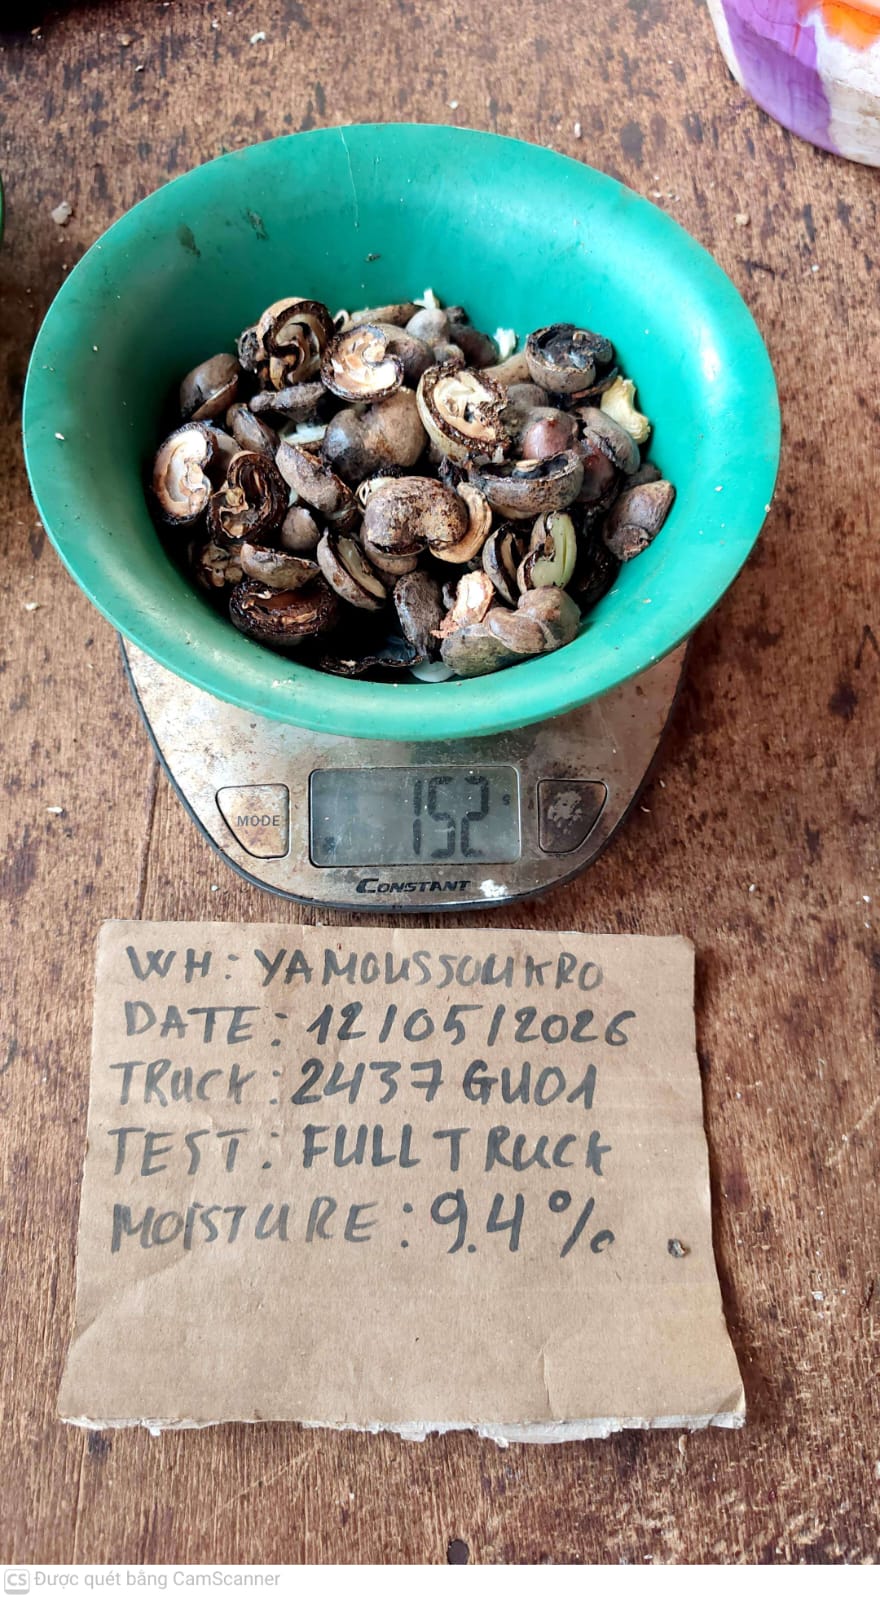 152
MODE
CONSTANT
WH: YAMOUSSOUKRO
DATE: 12/05/2026
TRUCK: 2437 GU01
TEST: FULL TRUCK
MOISTURE: 9.4%
CS Được quét bằng CamScanner